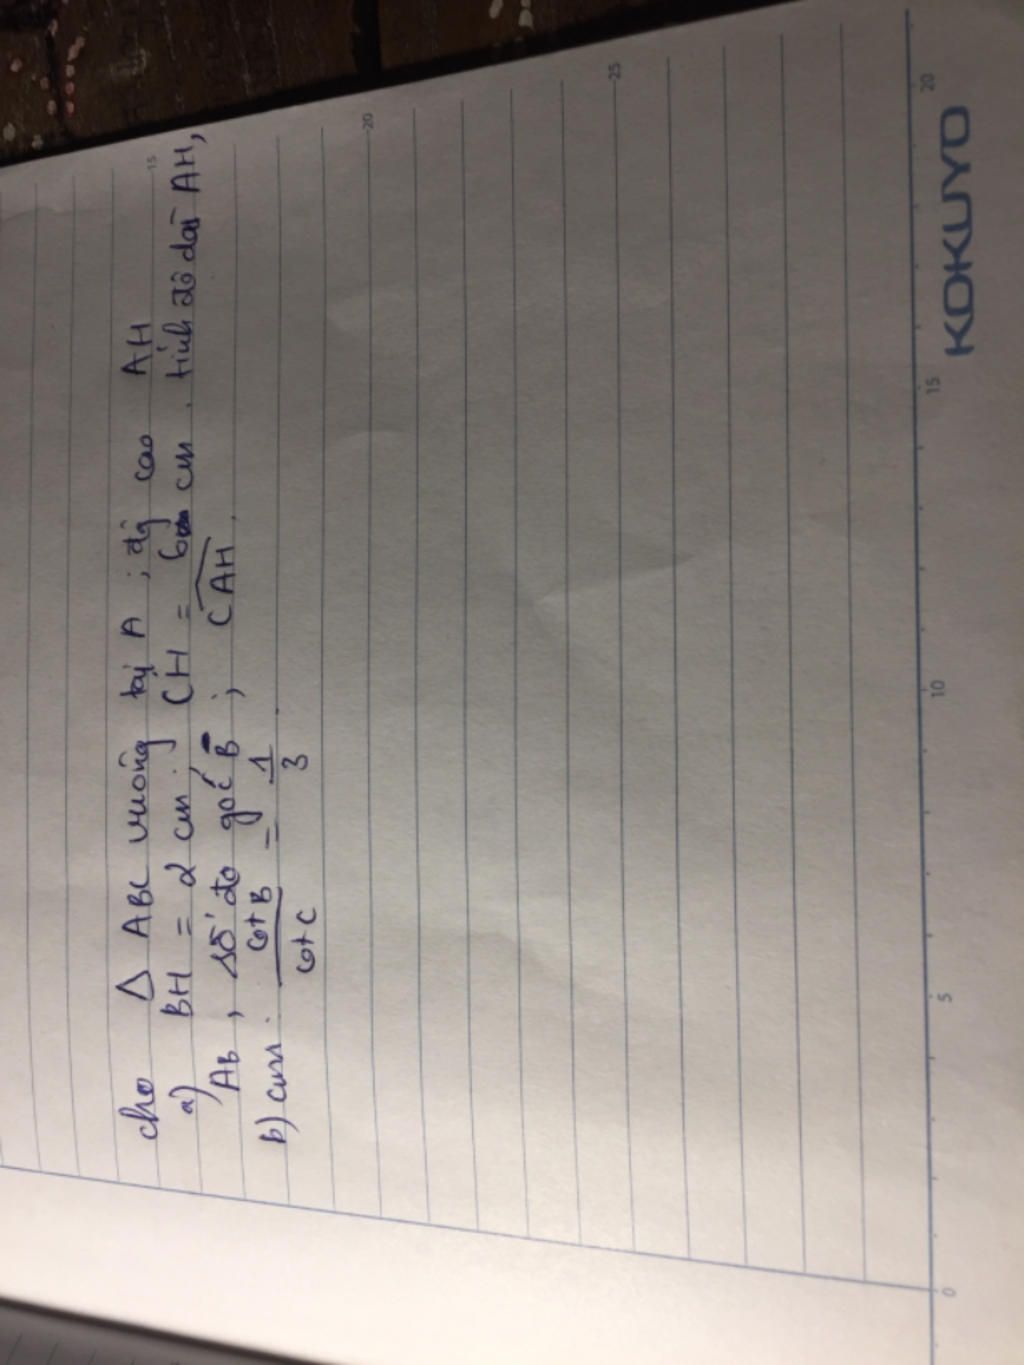 cho Δ ABC vuông tại A ; đg cao AH
a) BH = 2 cm. CH = 6 cm . tính độ dài AH,
AB , số đo góc B ; \widehat{CAH} .
b) cm . \frac{cot B}{cot C} = \frac{1}{3} .
15
20
25
0 5 10 15 20
KOKUYO